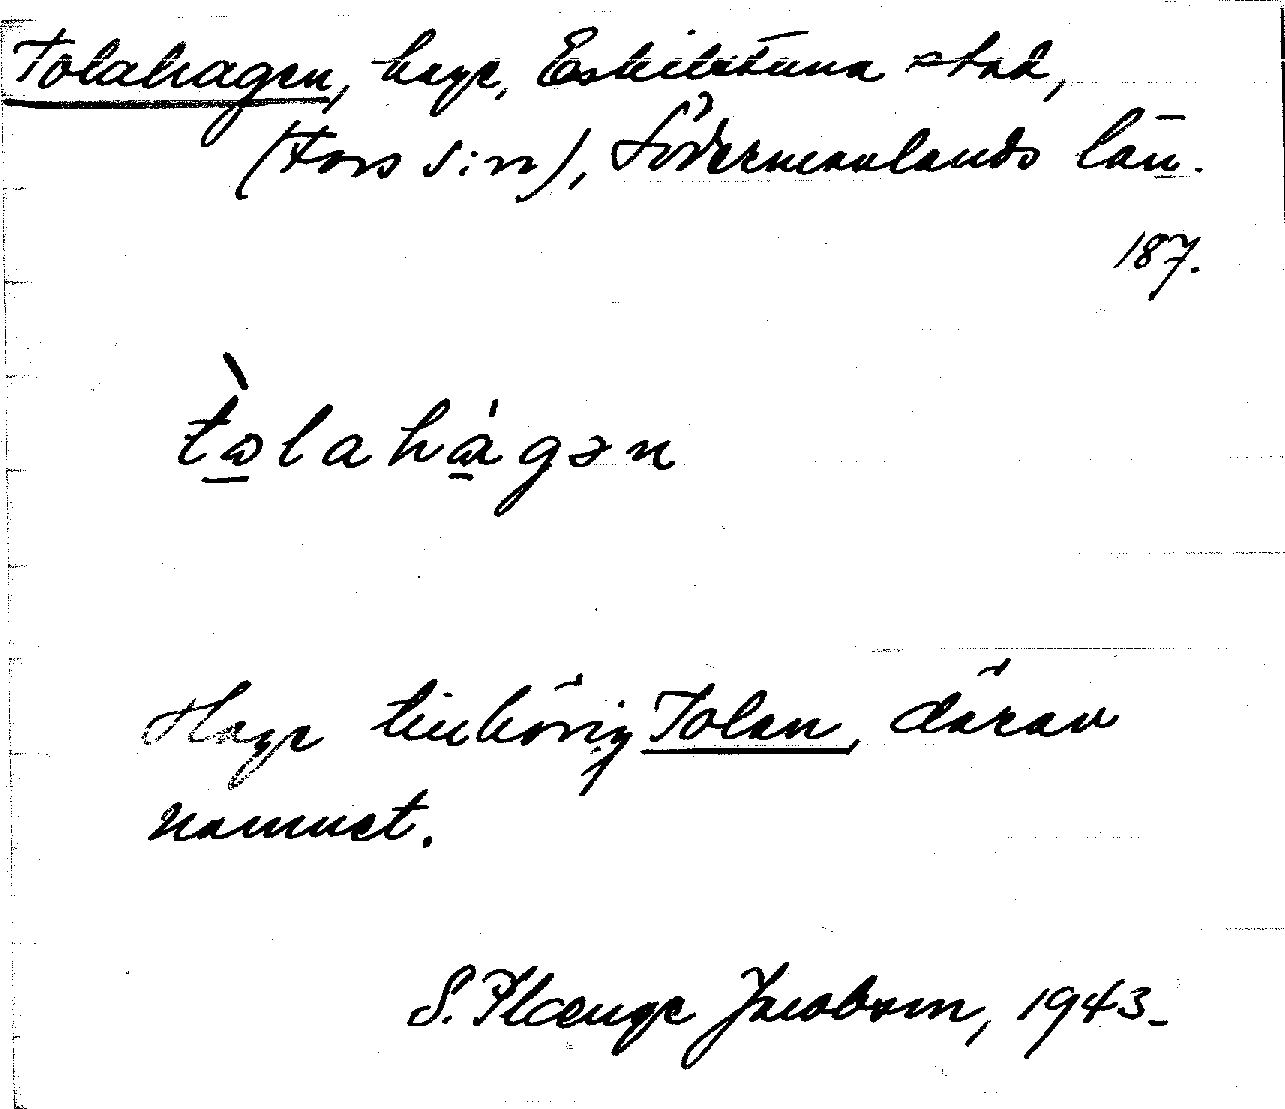 Tolahagen, hage, Eskilstuna stad,
(Fors s:n), Södermanlands län.
187.
tɷ̀lahágən
Hage tillhörig Tolan, därav
namnet.
S. Plœnge Jacobson, 1943.